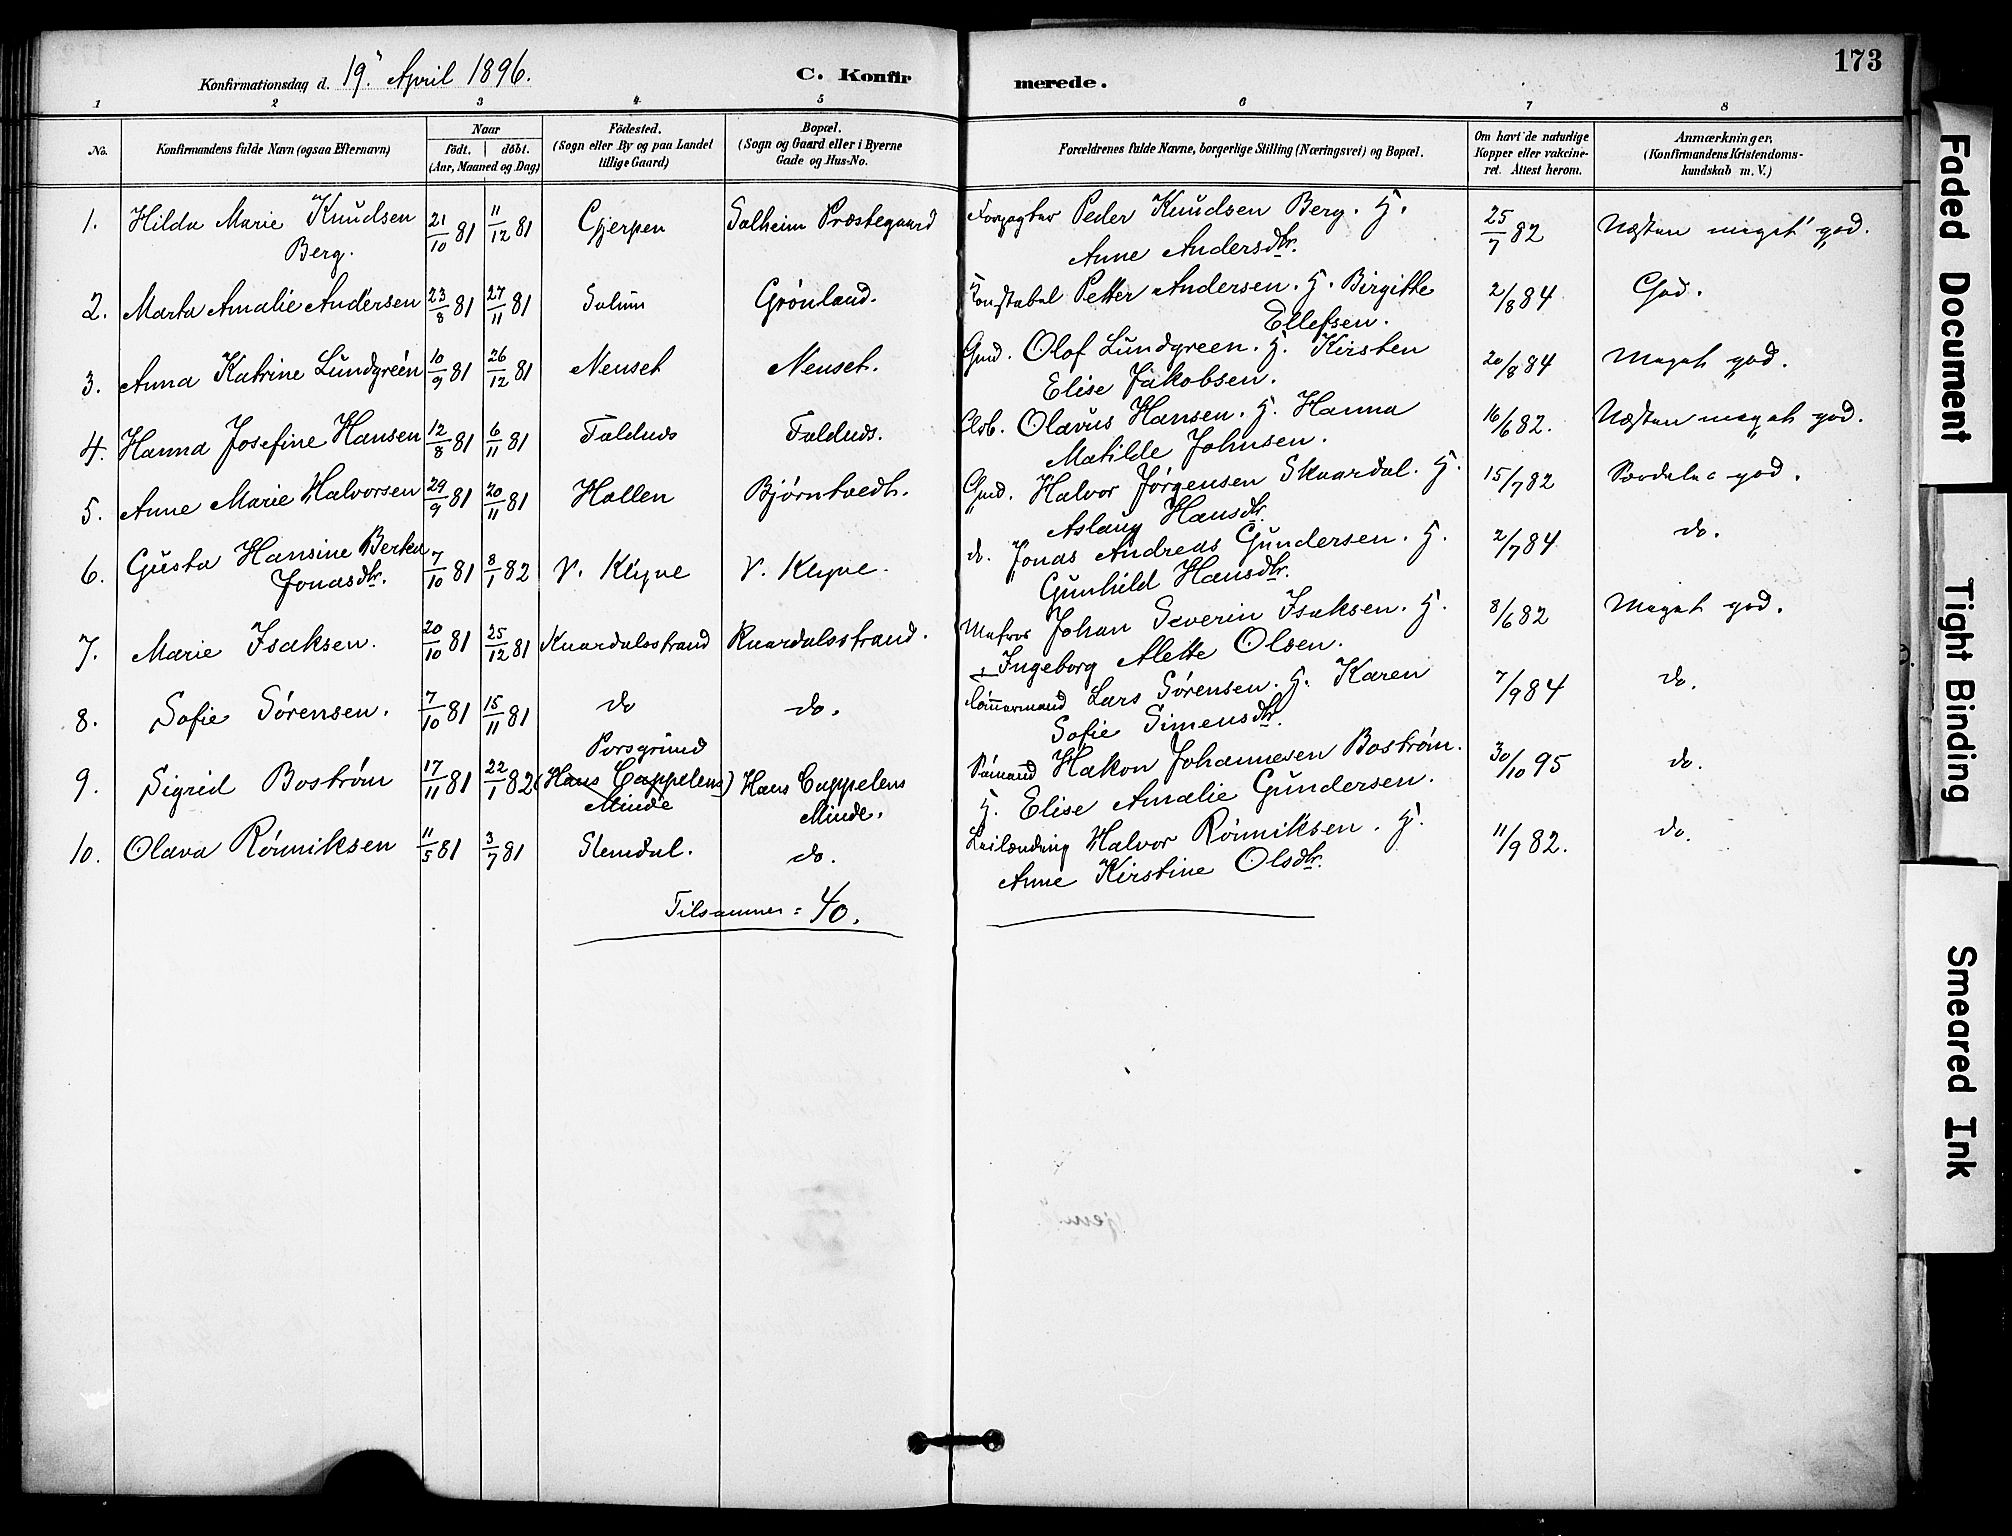 Konfirmationsdag d. 19' April 1896.
C. Konfirmerede.
173
1 2 3 4 5 6 7 8
No.
Konfirmandens fulde Navn (ogsaa Efternavn)
Naar
født. | døbt.
(Aar, Maaned og Dag)
Födested.
(Sogn eller By og paa Landet
tillige Gaard)
Bopæl.
(Sogn og Gaard eller i Byerne
Gade og Hus-No.
Forældrenes fulde Navne, borgerlige Stilling (Næringsvei) og Bopæl.
Om havt de naturlige
Kopper eller vakcine-
ret. Attest herom.
Anmærkninger,
(Konfirmandens Kristendoms-
kundskab m. V.)
1. Hilda Marie Knudsen 21/10 81 11/12 81 Gjerpen Solheim Præstegaard Forpagter Peder Knudsen Berg. H. 25/7 82 Næsten meget god.
Berg. Anne Andersdtr.
2. Marta Amalie Andersen 23/8 81 27/11 81 Solum Grönland. Konstabel Petter Andersen. H. Birgitte 2/8 84 God.
Ellefsen.
3. Anna Katrine Lundgreen 10/9 81 26/12 81 Nenset Nenset. Gmd. Olof Lundgreen. H. Kirsten 20/8 84 Meget god.
Elise Jakobsen.
4. Hanna Josefine Hansen 12/8 81 6/11 81 Faldnds Faldnds. Arb. Olavus Hansen. H. Hanna 16/6 82. Næsten meget god.
Matilde Johnsen.
5. Anne Marie Halvorsen 29/9 81 20/11 81 Hollen Bjørntvedt. Gmd. Halvor Jørgensen Skaardal. H. 15/7 82 Særdeles god.
Aslaug Hansdtr.
6. Gusta Hansine Berta 7/10 81 8/1 82 V. Klyve V. Klyve. do. Jonas Andreas Gundersen. H. 2/7 84 do.
Jonasdtr. Gunhild Hansdtr.
7. Marie Isaksen. 20/10 81 25/12 81 Knardalsstrand Knardalsstrand. Matros Johan Severin Isaksen. H. 8/6 82 Meget god.
Ingeborg Alette Olsen.
8. Sofie Sørensen. 7/10 81 15/11 81 do do. Tømmermand Lars Sørensen. H. Karen 7/9 84 do.
Sofie Simensdtr.
Porsgrund
9. Sigrid Bostrøm 17/11 81 22/1 82 (Hans Cappelens) Hans Cappelens Sømand Hakon Johannesen Bostrøm. 30/10 95 do.
Minde Minde. H. Elise Amalie Gundersen.
10. Olava Rønniksen 11/5 81 3/7 81 Slemdal. do. Leilænding Halvor Rønniksen. H. 11/9 82. do.
Anne Kirstine Olsdtr.
Tilsammen = 40.
Faded Document
Tight Binding
Smeared Ink